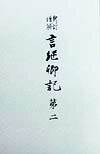 新訂
増補
言継卿記
第二